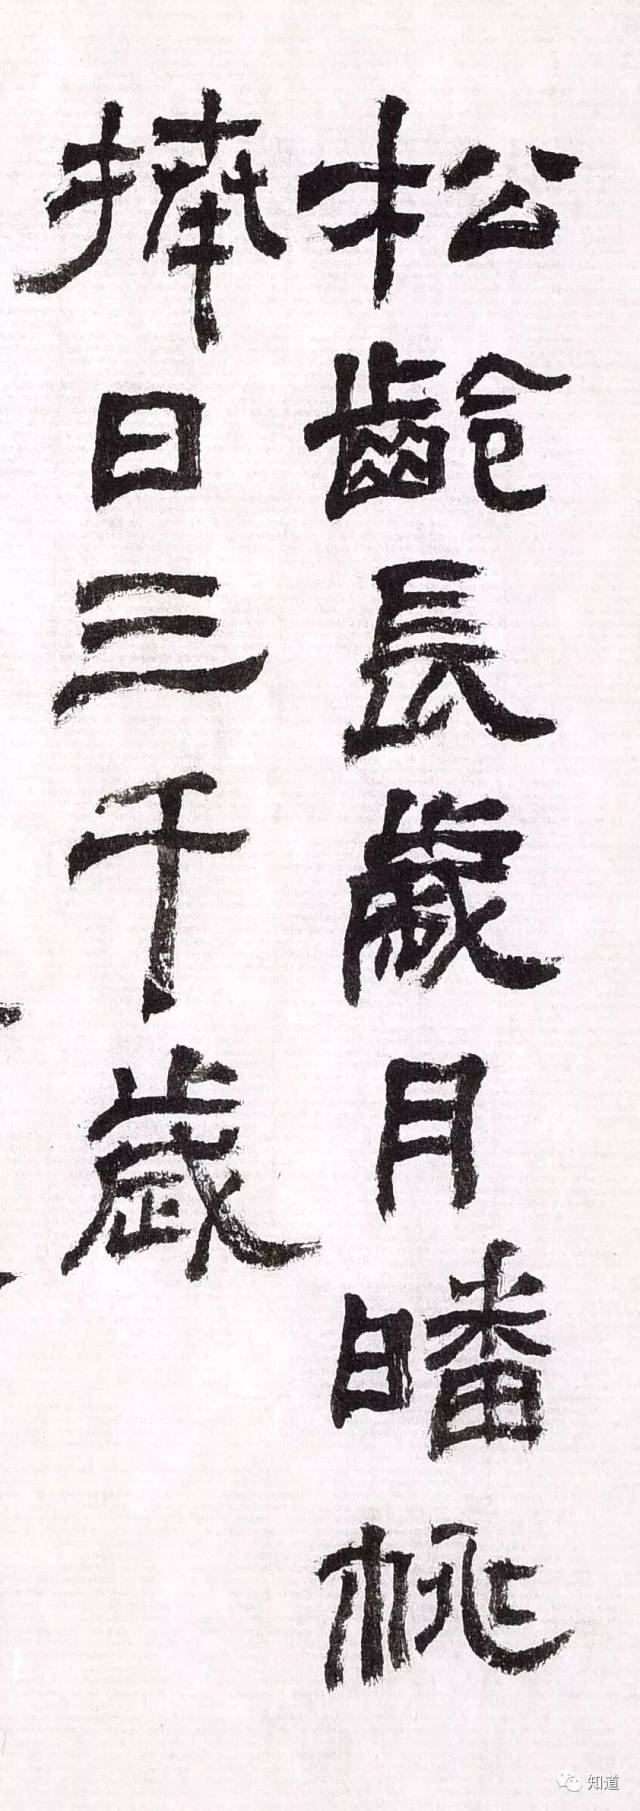 松齡長歲月皤桃
捧日三千歲
知道